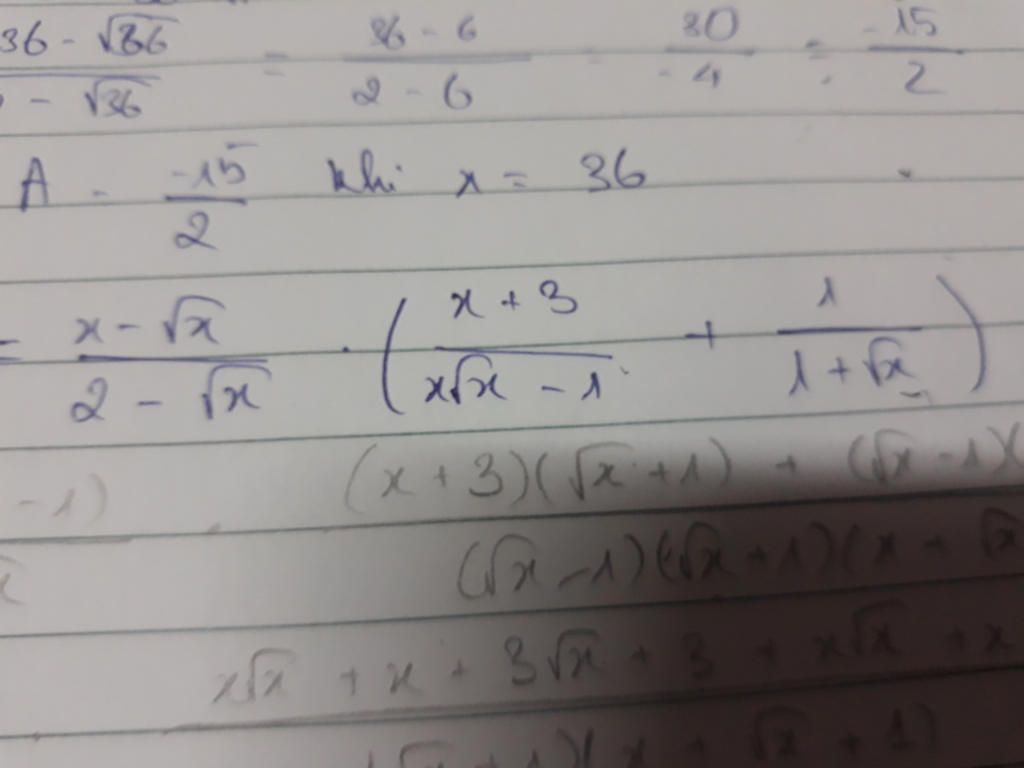 36 - √36 / - √36 = 36 - 6 / 2 - 6 = 30 / -4 = -15 / 2
A = -15 / 2 khi x = 36
= x - √x / 2 - √x . ( x + 3 / x√x - 1 + 1 / 1 + √x )
- 1) . (x + 3)(√x + 1) + (√x - 1)(
(√x - 1)(√x + 1)(x + √x
x√x + x + 3√x + 3 + x√x + x
+ 1)(x + √x + 1)